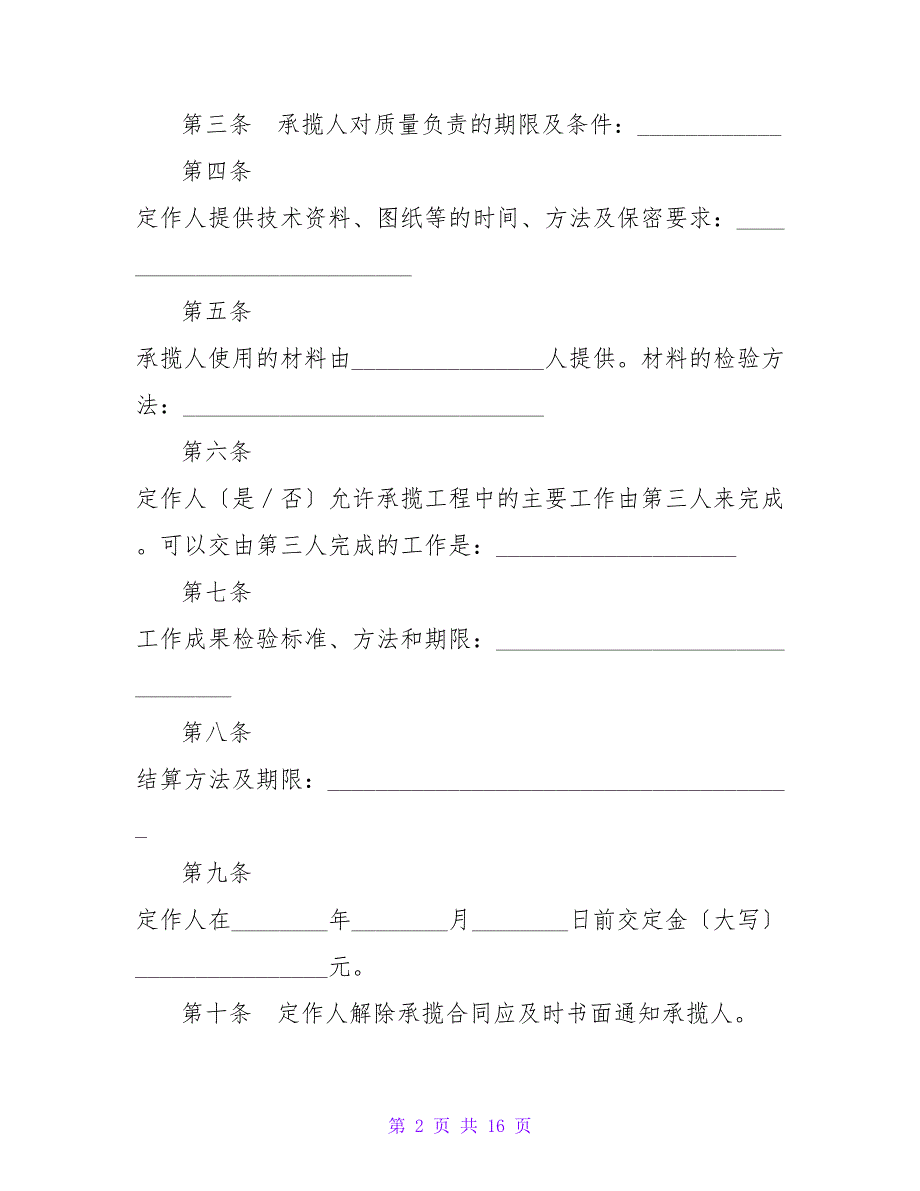 第三条　承揽人对质量负责的期限及条件：____________
第四条
定作人提供技术资料、图纸等的时间、方法及保密要求：____
_______________________
第五条
承揽人使用的材料由________________人提供。材料的检验方
法：______________________________
第六条
定作人〔是／否〕允许承揽工程中的主要工作由第三人来完成
。可以交由第三人完成的工作是：____________________
第七条
工作成果检验标准、方法和期限：________________________
________
第八条
结算方法及期限：______________________________________
_
第九条
定作人在________年________月________日前交定金〔大写〕
________________元。
第十条　定作人解除承揽合同应及时书面通知承揽人。
第 2 页 共 16 页